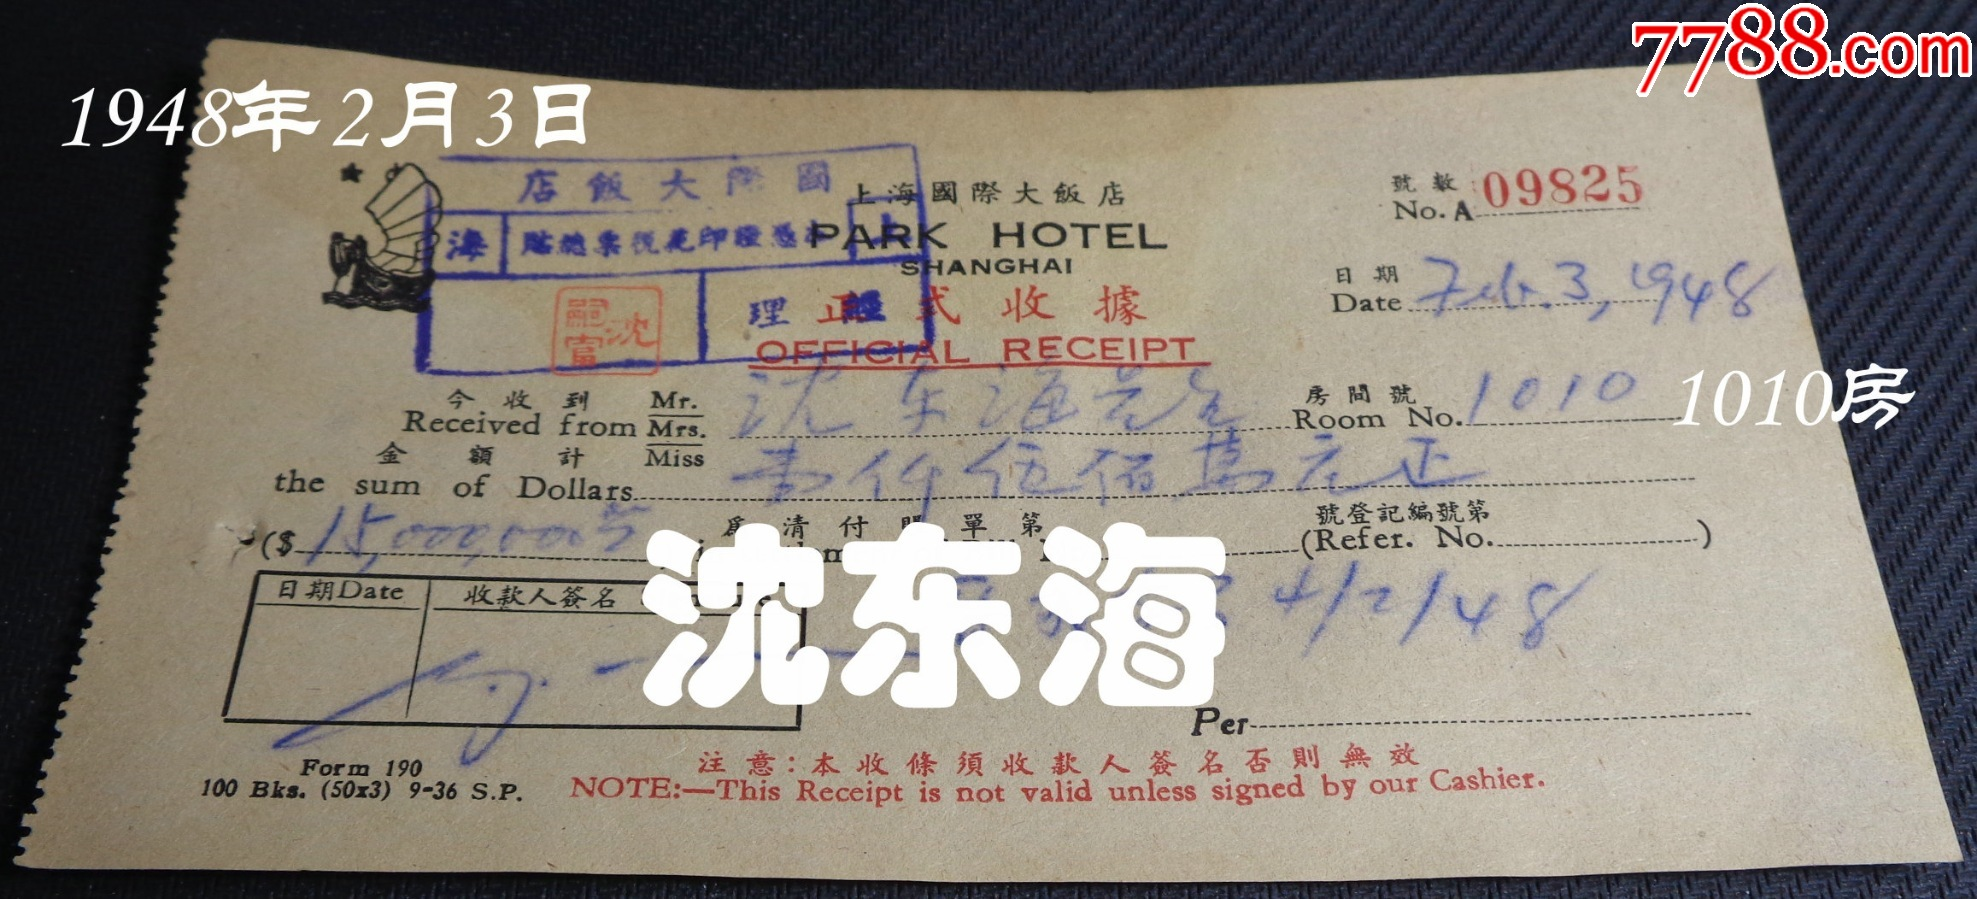 7788.com
1948年2月3日
國際大飯店
海
上
貼總票稅花印證憑
理 經
沈嗣富
上海國際大飯店
PARK HOTEL
SHANGHAI
正式收據
OFFICIAL RECEIPT
號數
No. A 09825
日期
Date Feb. 3, 1948
今收到 Mr.
Received from Mrs.
Miss
沈东海先生
房間號
Room No. 1010
1010房
金額計
the sum of Dollars 壹仟伍佰萬元正
($ 15,000,000
為清付 單第
號登記編號第
(Refer. No. )
沈东海
4/2/48
日期Date
收款人簽名
Per
Form 190
100 Bks. (50x3) 9-36 S.P.
注意:本收條須收款人簽名否則無效
NOTE:—This Receipt is not valid unless signed by our Cashier.